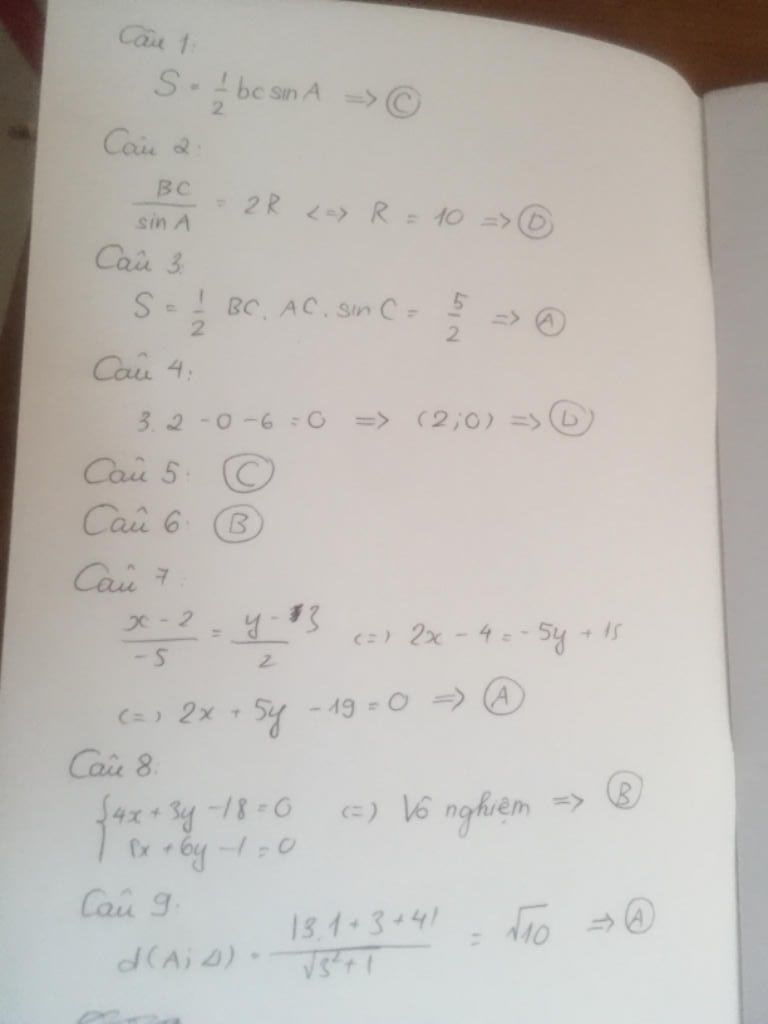 Câu 1:
S = 1/2 bc sin A => C
Câu 2:
BC/sin A = 2R <=> R = 10 => D
Câu 3:
S = 1/2 BC. AC. sin C = 5/2 => A
Câu 4:
3.2 - 0 - 6 = 0 => (2;0) => D
Câu 5: C
Câu 6: B
Câu 7:
(x - 2)/(-5) = (y - 3)/2 <=> 2x - 4 = -5y + 15
<=> 2x + 5y - 19 = 0 => A
Câu 8:
{4x + 3y - 18 = 0 <=> Vô nghiệm => B
8x + 6y - 1 = 0
Câu 9:
d(A; Δ) = |3.1 + 3 + 4|/√(3² + 1) = √10 => A